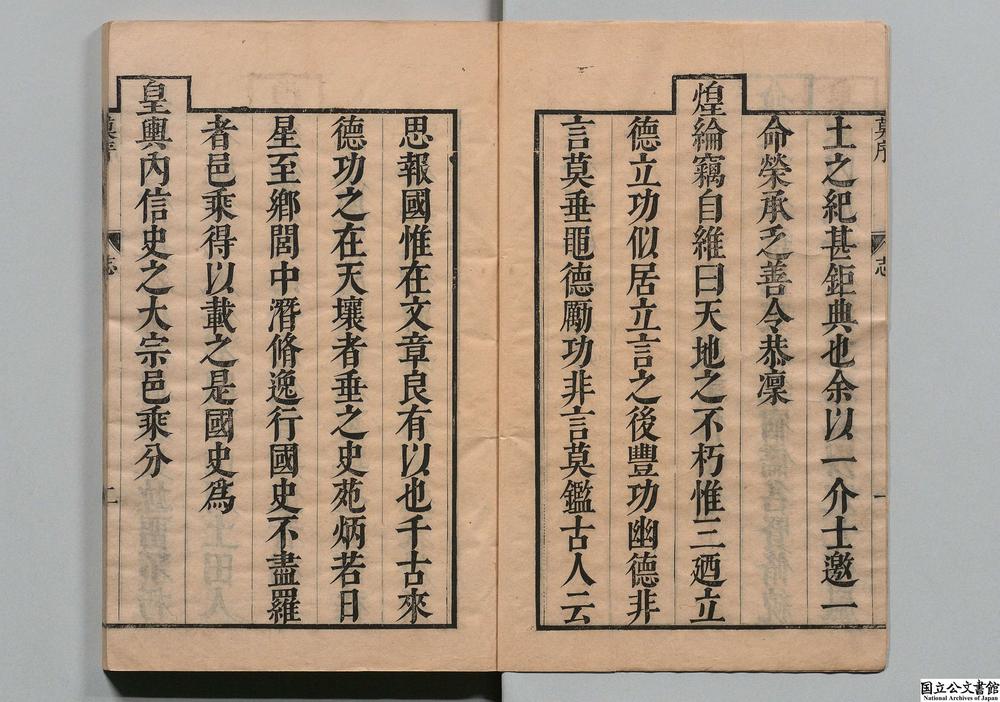 土之紀甚鉅典也余以一介士邀一
命榮承乏善令恭凜
煌綸竊自維曰天地之不朽惟三廼立
德立功似居立言之後豐功幽德非
言莫垂黽德勵功非言莫鑑古人云
思報國惟在文章良有以也千古來
德功之在天壤者垂之史苑炳若日
星至鄉閭中潛脩逸行國史不盡羅
者邑乘得以載之是國史為
皇輿內信史之大宗邑乘分
志
一
志
二
国立公文書館
National Archives of Japan